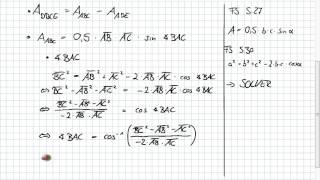 • A_DBCE = A_ABC - A_ADE
• A_ABC = 0,5 · AB̅ · AC̅ · sin ∢ BAC
• ∢ BAC
BC̅² = AB̅² + AC̅² - 2 · AB̅ · AC̅ · cos ∢ BAC
⇔ BC̅² - AB̅² - AC̅² = -2 · AB̅ · AC̅ · cos ∢ BAC
⇔ (BC̅² - AB̅² - AC̅²) / (-2 · AB̅ · AC̅) = cos ∢ BAC
⇔ ∢ BAC = cos⁻¹ ((BC̅² - AB̅² - AC̅²) / (-2 · AB̅ · AC̅))
FS S.27
A = 0,5 · b · c · sin α
FS S.30
a² = b² + c² - 2 · b · c · cos α
→ SOLVER